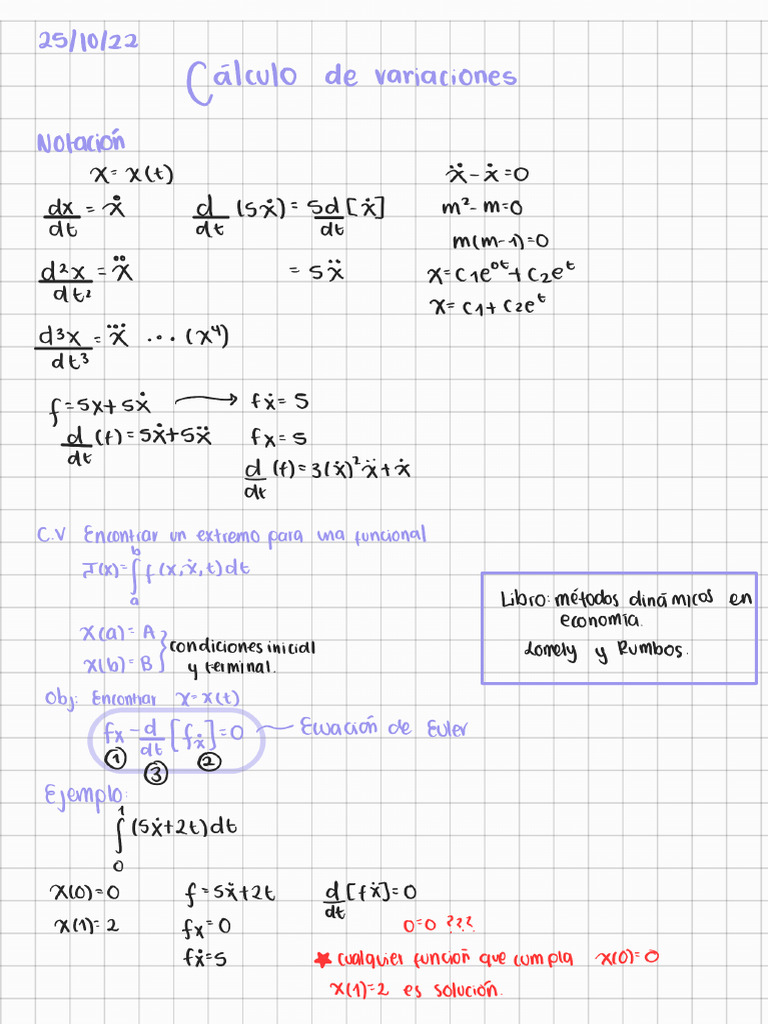 25/10/22
Cálculo de variaciones
Notación
x = x(t)
dx/dt = ẋ
d/dt (5ẋ) = 5d/dt [ẋ]
= 5ẍ
d²x/dt² = ẍ
d³x/dt³ = x⃛ ... (x⁴)
ẍ - ẋ = 0
m² - m = 0
m(m-1) = 0
x = c1e^0t + c2e^t
x = c1 + c2e^t
f = 5x + 5ẋ → fẋ = 5
d/dt (f) = 5ẋ + 5ẍ fx = 5
d/dt (f) = 3(ẋ)² ẍ + ẋ
C.V Encontrar un extremo para una funcional
J(x) = ∫ₐᵇ f(x, ẋ, t) dt
x(a) = A
x(b) = B
condiciones inicial
y terminal.
Libro: métodos dinámicos en
economía.
Lomely y Rumbos.
Obj: Encontrar x = x(t)
fx - d/dt [fẋ] = 0 Ecuación de Euler
① ③ ②
Ejemplo:
∫₀¹ (5ẋ + 2t) dt
x(0) = 0 f = 5ẋ + 2t d/dt [fẋ] = 0
x(1) = 2 fx = 0 0 = 0 ???
fẋ = 5 ★ cualquier función que cumpla x(0) = 0
x(1) = 2 es solución.